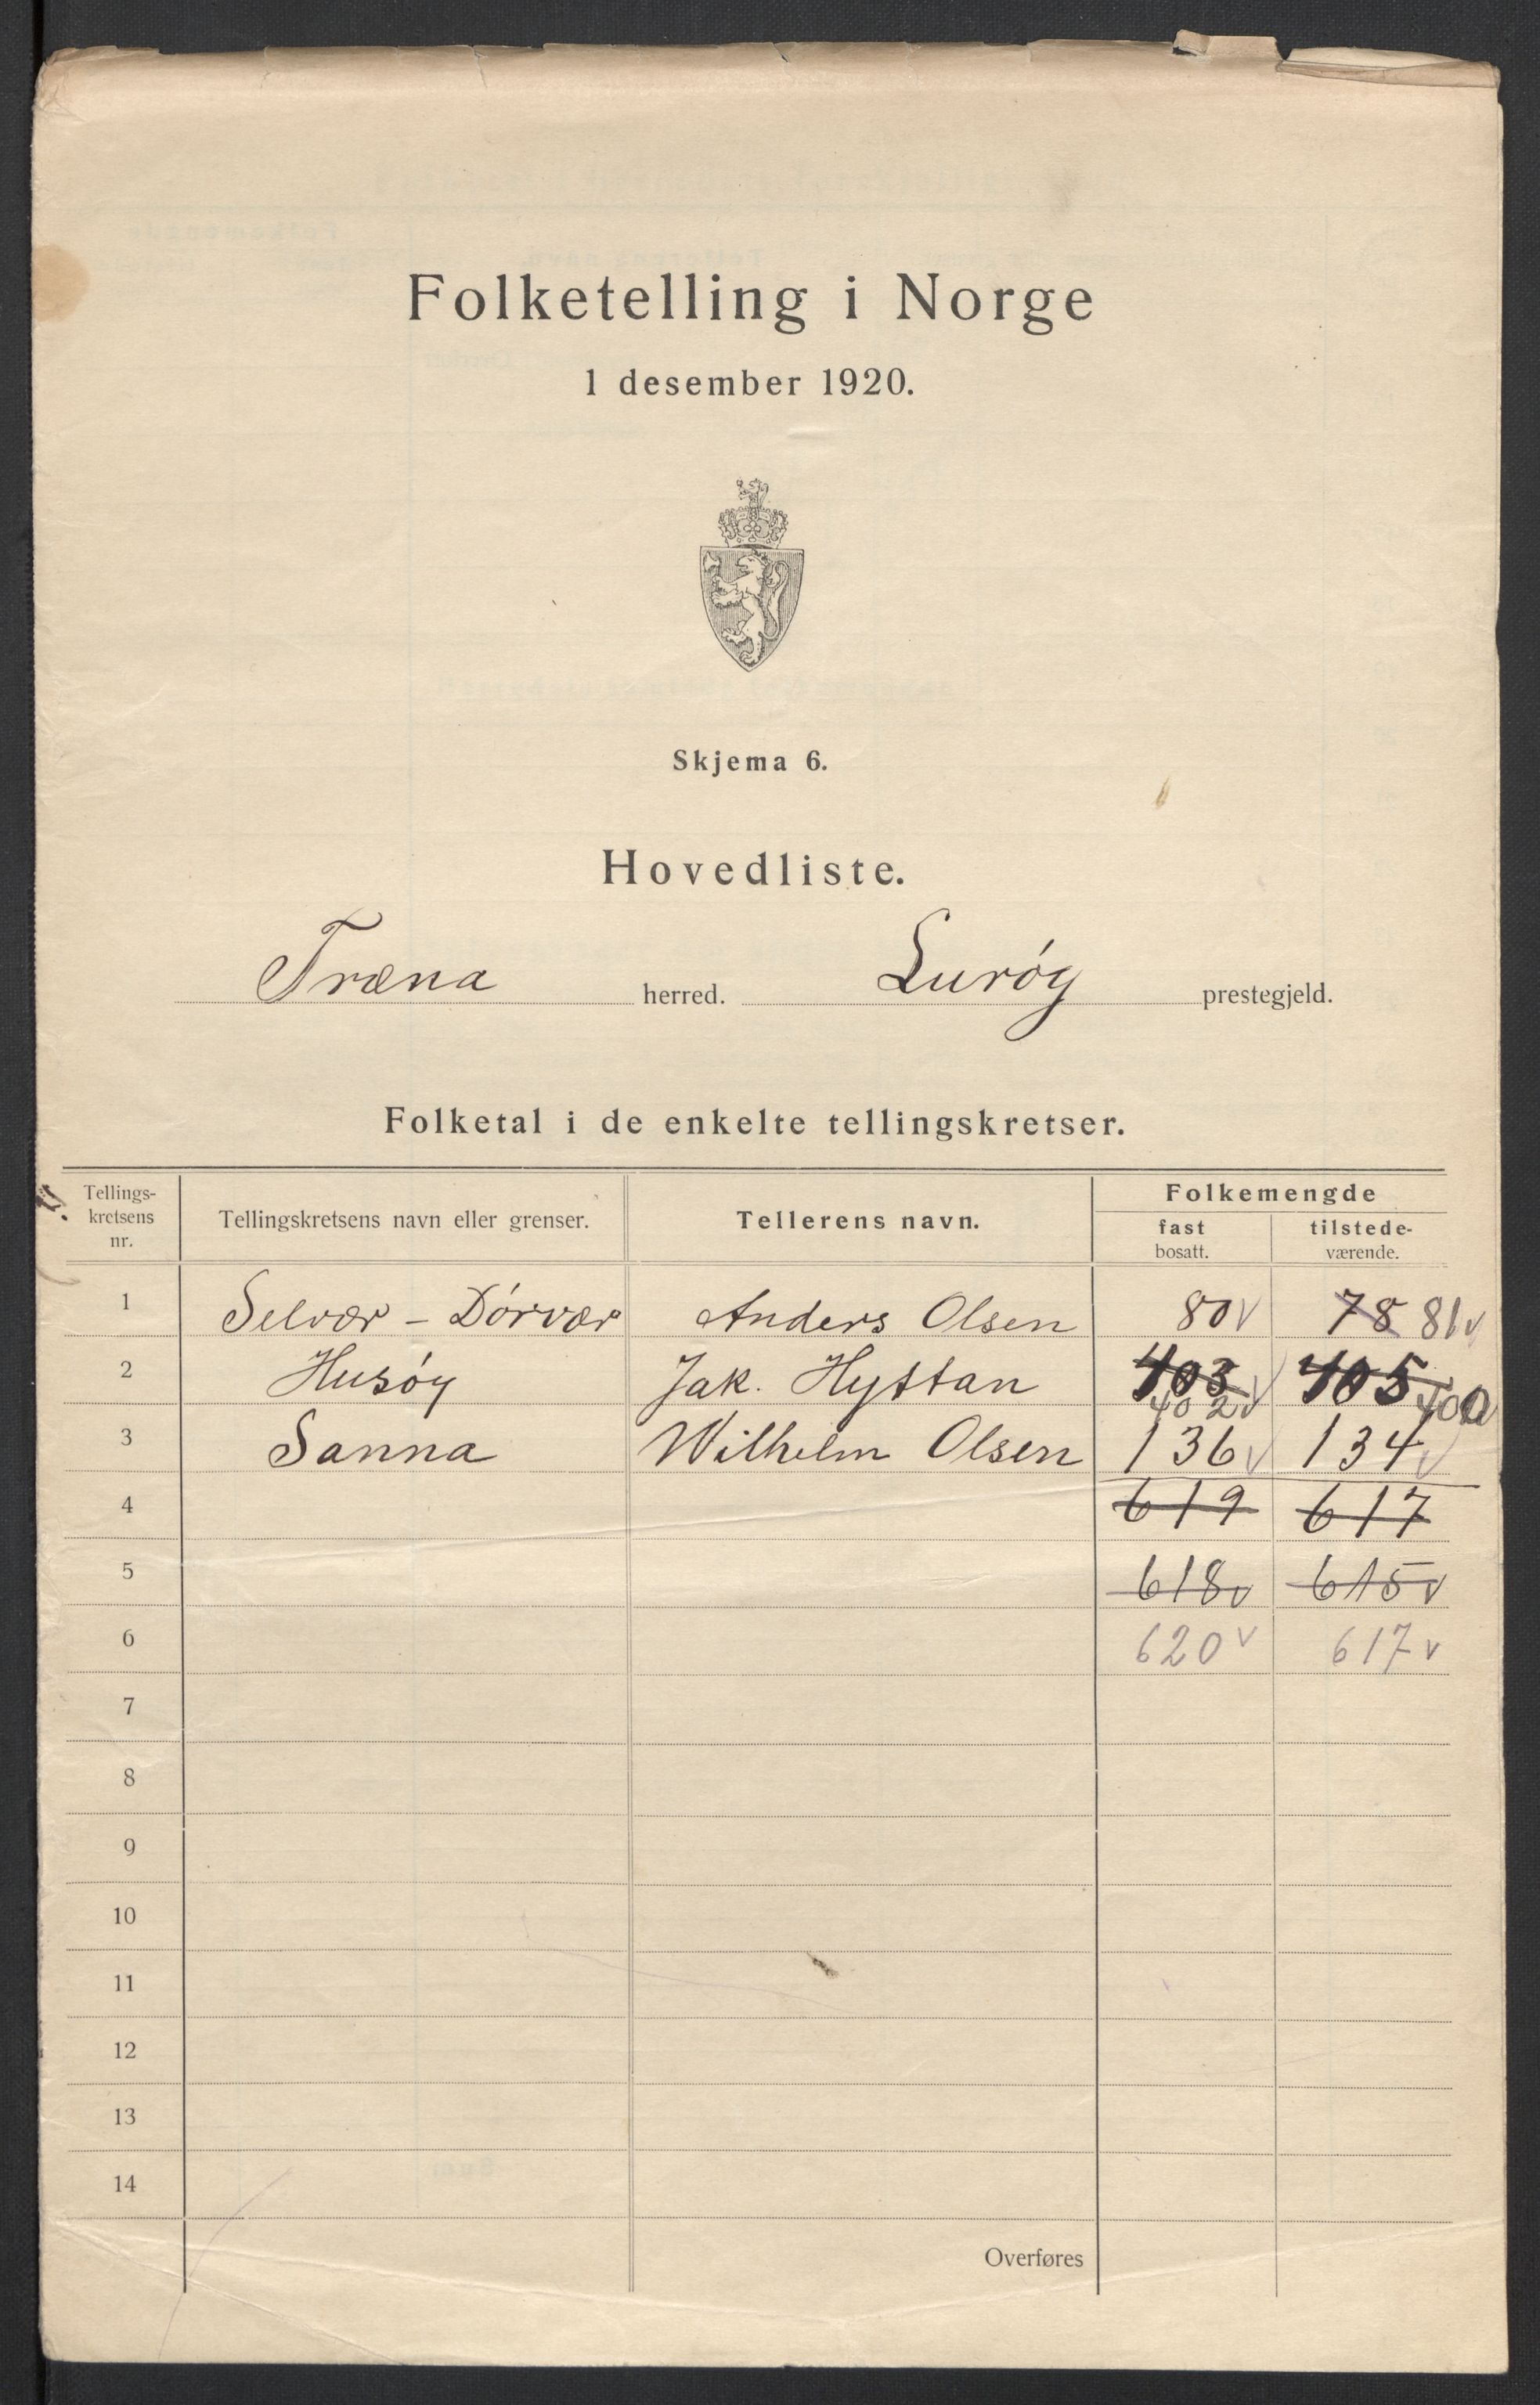 Folketelling i Norge
1 desember 1920.
Skjema 6.
Hovedliste.
Træna herred. Lurøy prestegjeld.
Folketal i de enkelte tellingskretser.
Tellings-
kretsens
nr.
Tellingskretsens navn eller grenser.
Tellerens navn.
Folkemengde
fast
bosatt.
tilstede-
værende.
1 Selvær - Dórvær Anders Olsen 80 v 78 81 v
2 Husóy Jak. Hyttan 403 v 405
402 v 400
3 Sanna Wilhelm Olsen 136 v 134 v
4 619 617
5 618 v 615 v
6 620 v 617 v
7
8
9
10
11
12
13
14
Overføres